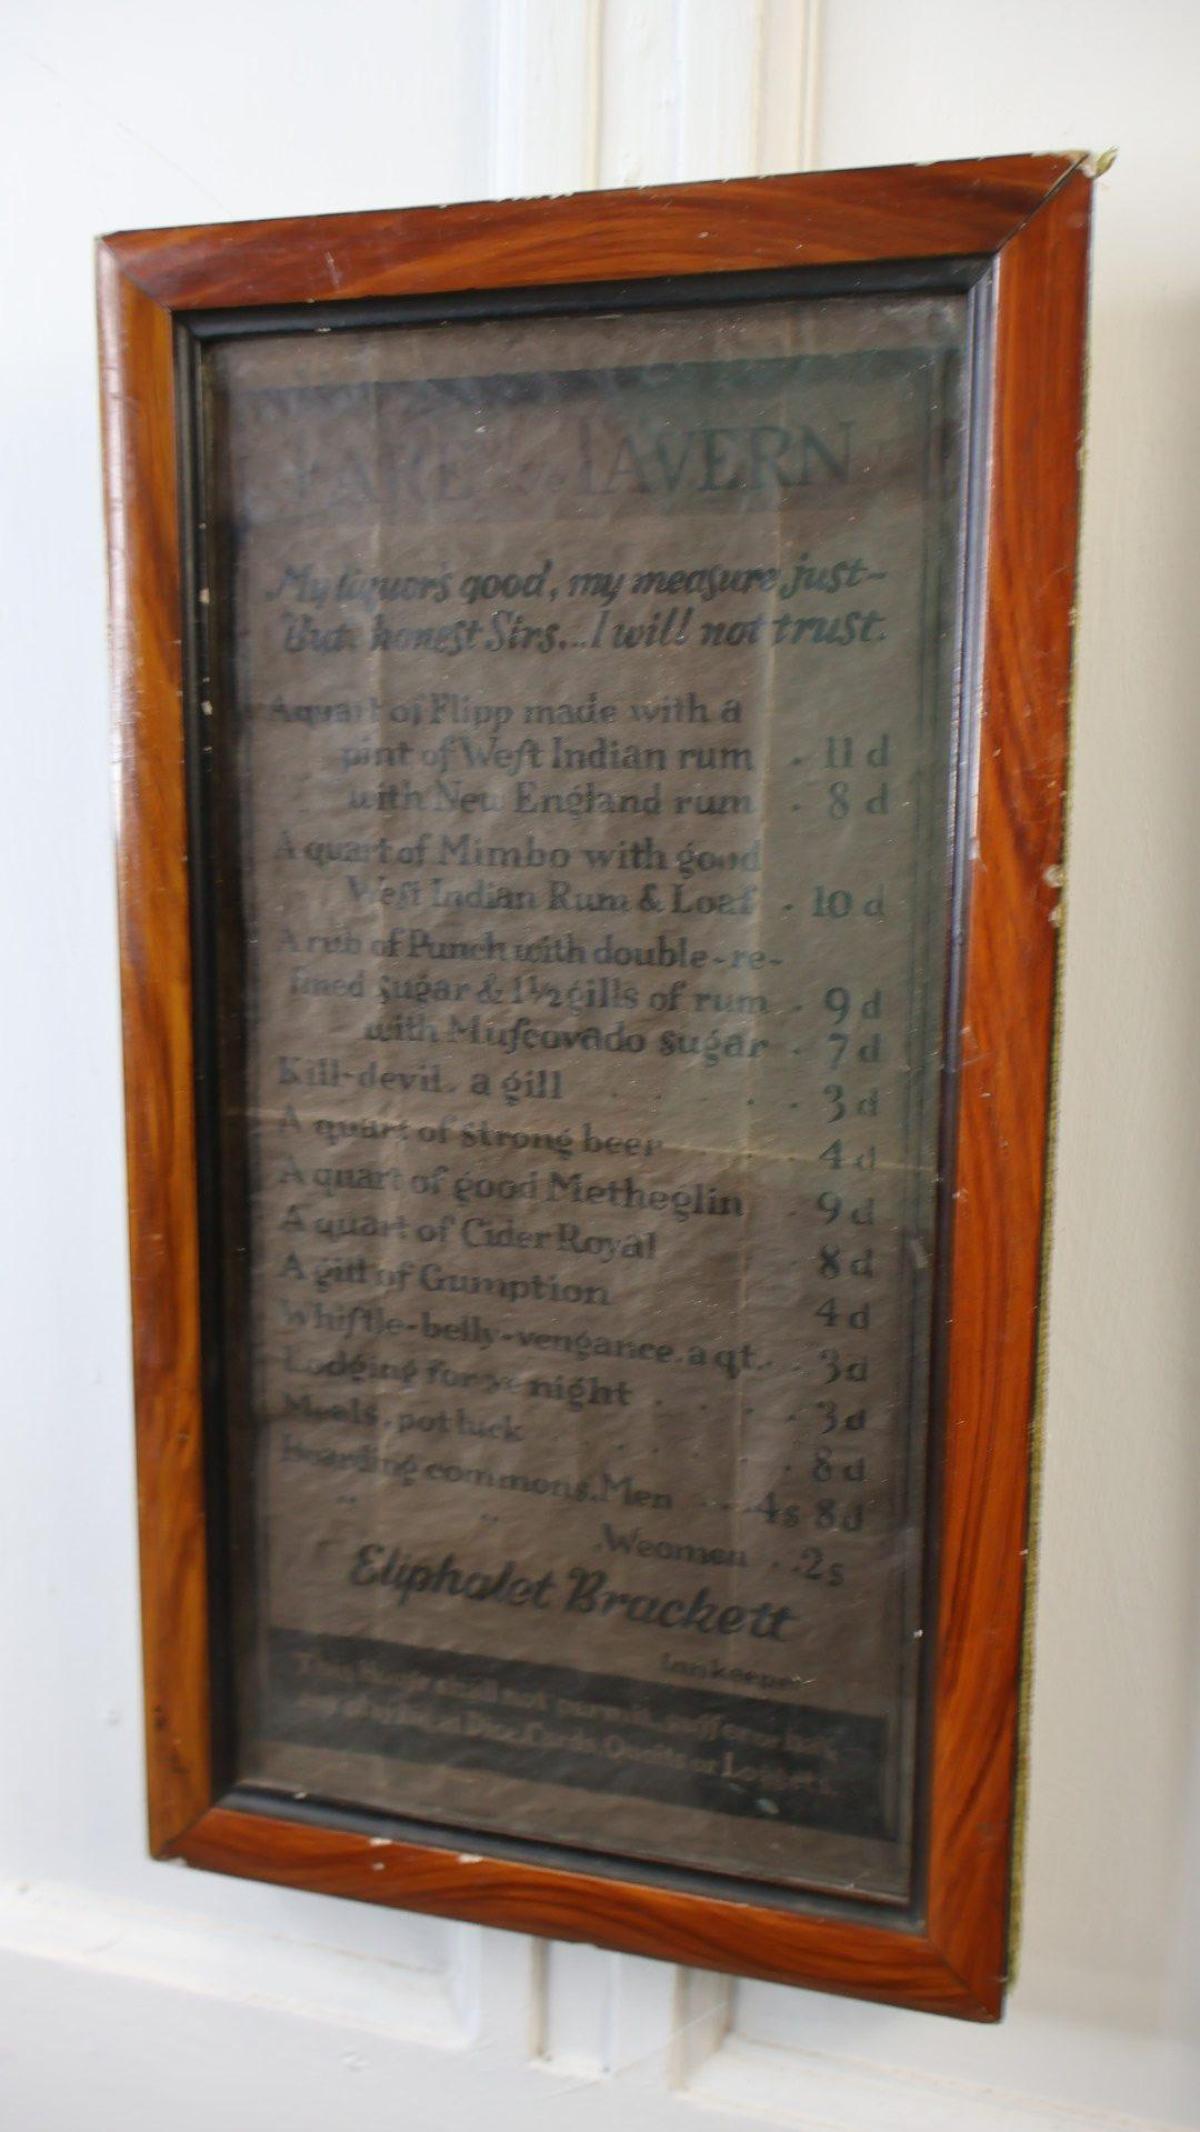 FARE TAVERN
My liquor's good, my meaſure just-
But honest Sirs...I will not trust.
A quart of Flipp made with a
pint of Weſt Indian rum . 11 d
with New England rum . 8 d
A quart of Mimbo with good
Weſt Indian Rum & Loaf . 10 d
A rub of Punch with double-re-
fined sugar & 1½ gills of rum . 9 d
with Muſcovado sugar . 7 d
Kill-devil. a gill . . . . 3 d
A quart of strong beer . . . 4 d
A quart of good Metheglin . 9 d
A quart of Cider Royal . 8 d
A gill of Gumption 4 d
Whiſtle-belly-vengance. a qt. . . 3 d
Lodging for ye night . . . . 3 d
Meals. pot luck . . . . 8 d
Boarding commons. Men ---4s 8d
" " .Weomen . .2s
Eliphalet Brackett
innkeeper
shall not permit, suffer or
at Dice, Cards, Quoits or Loggets.